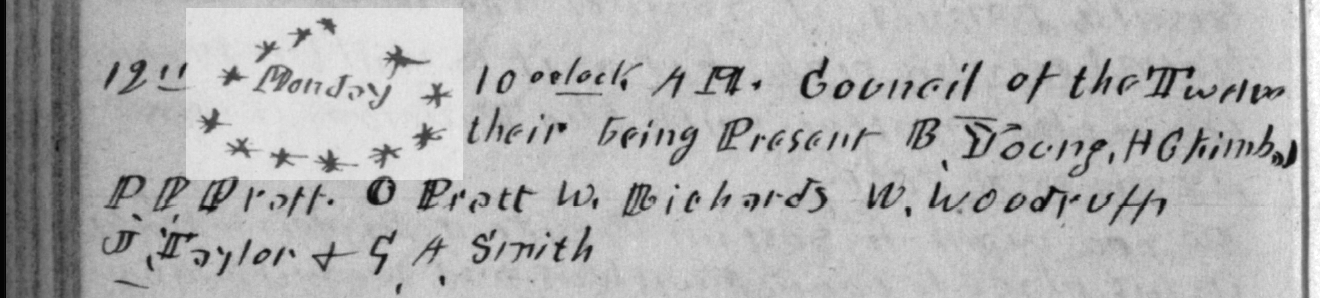 12th Monday 10 oclock A M. Council of the Twelve
their being Present B. Young, H C Kimball
P. P. Pratt. O Pratt W. Richards W. Woodruff
J. Taylor & G. A. Smith